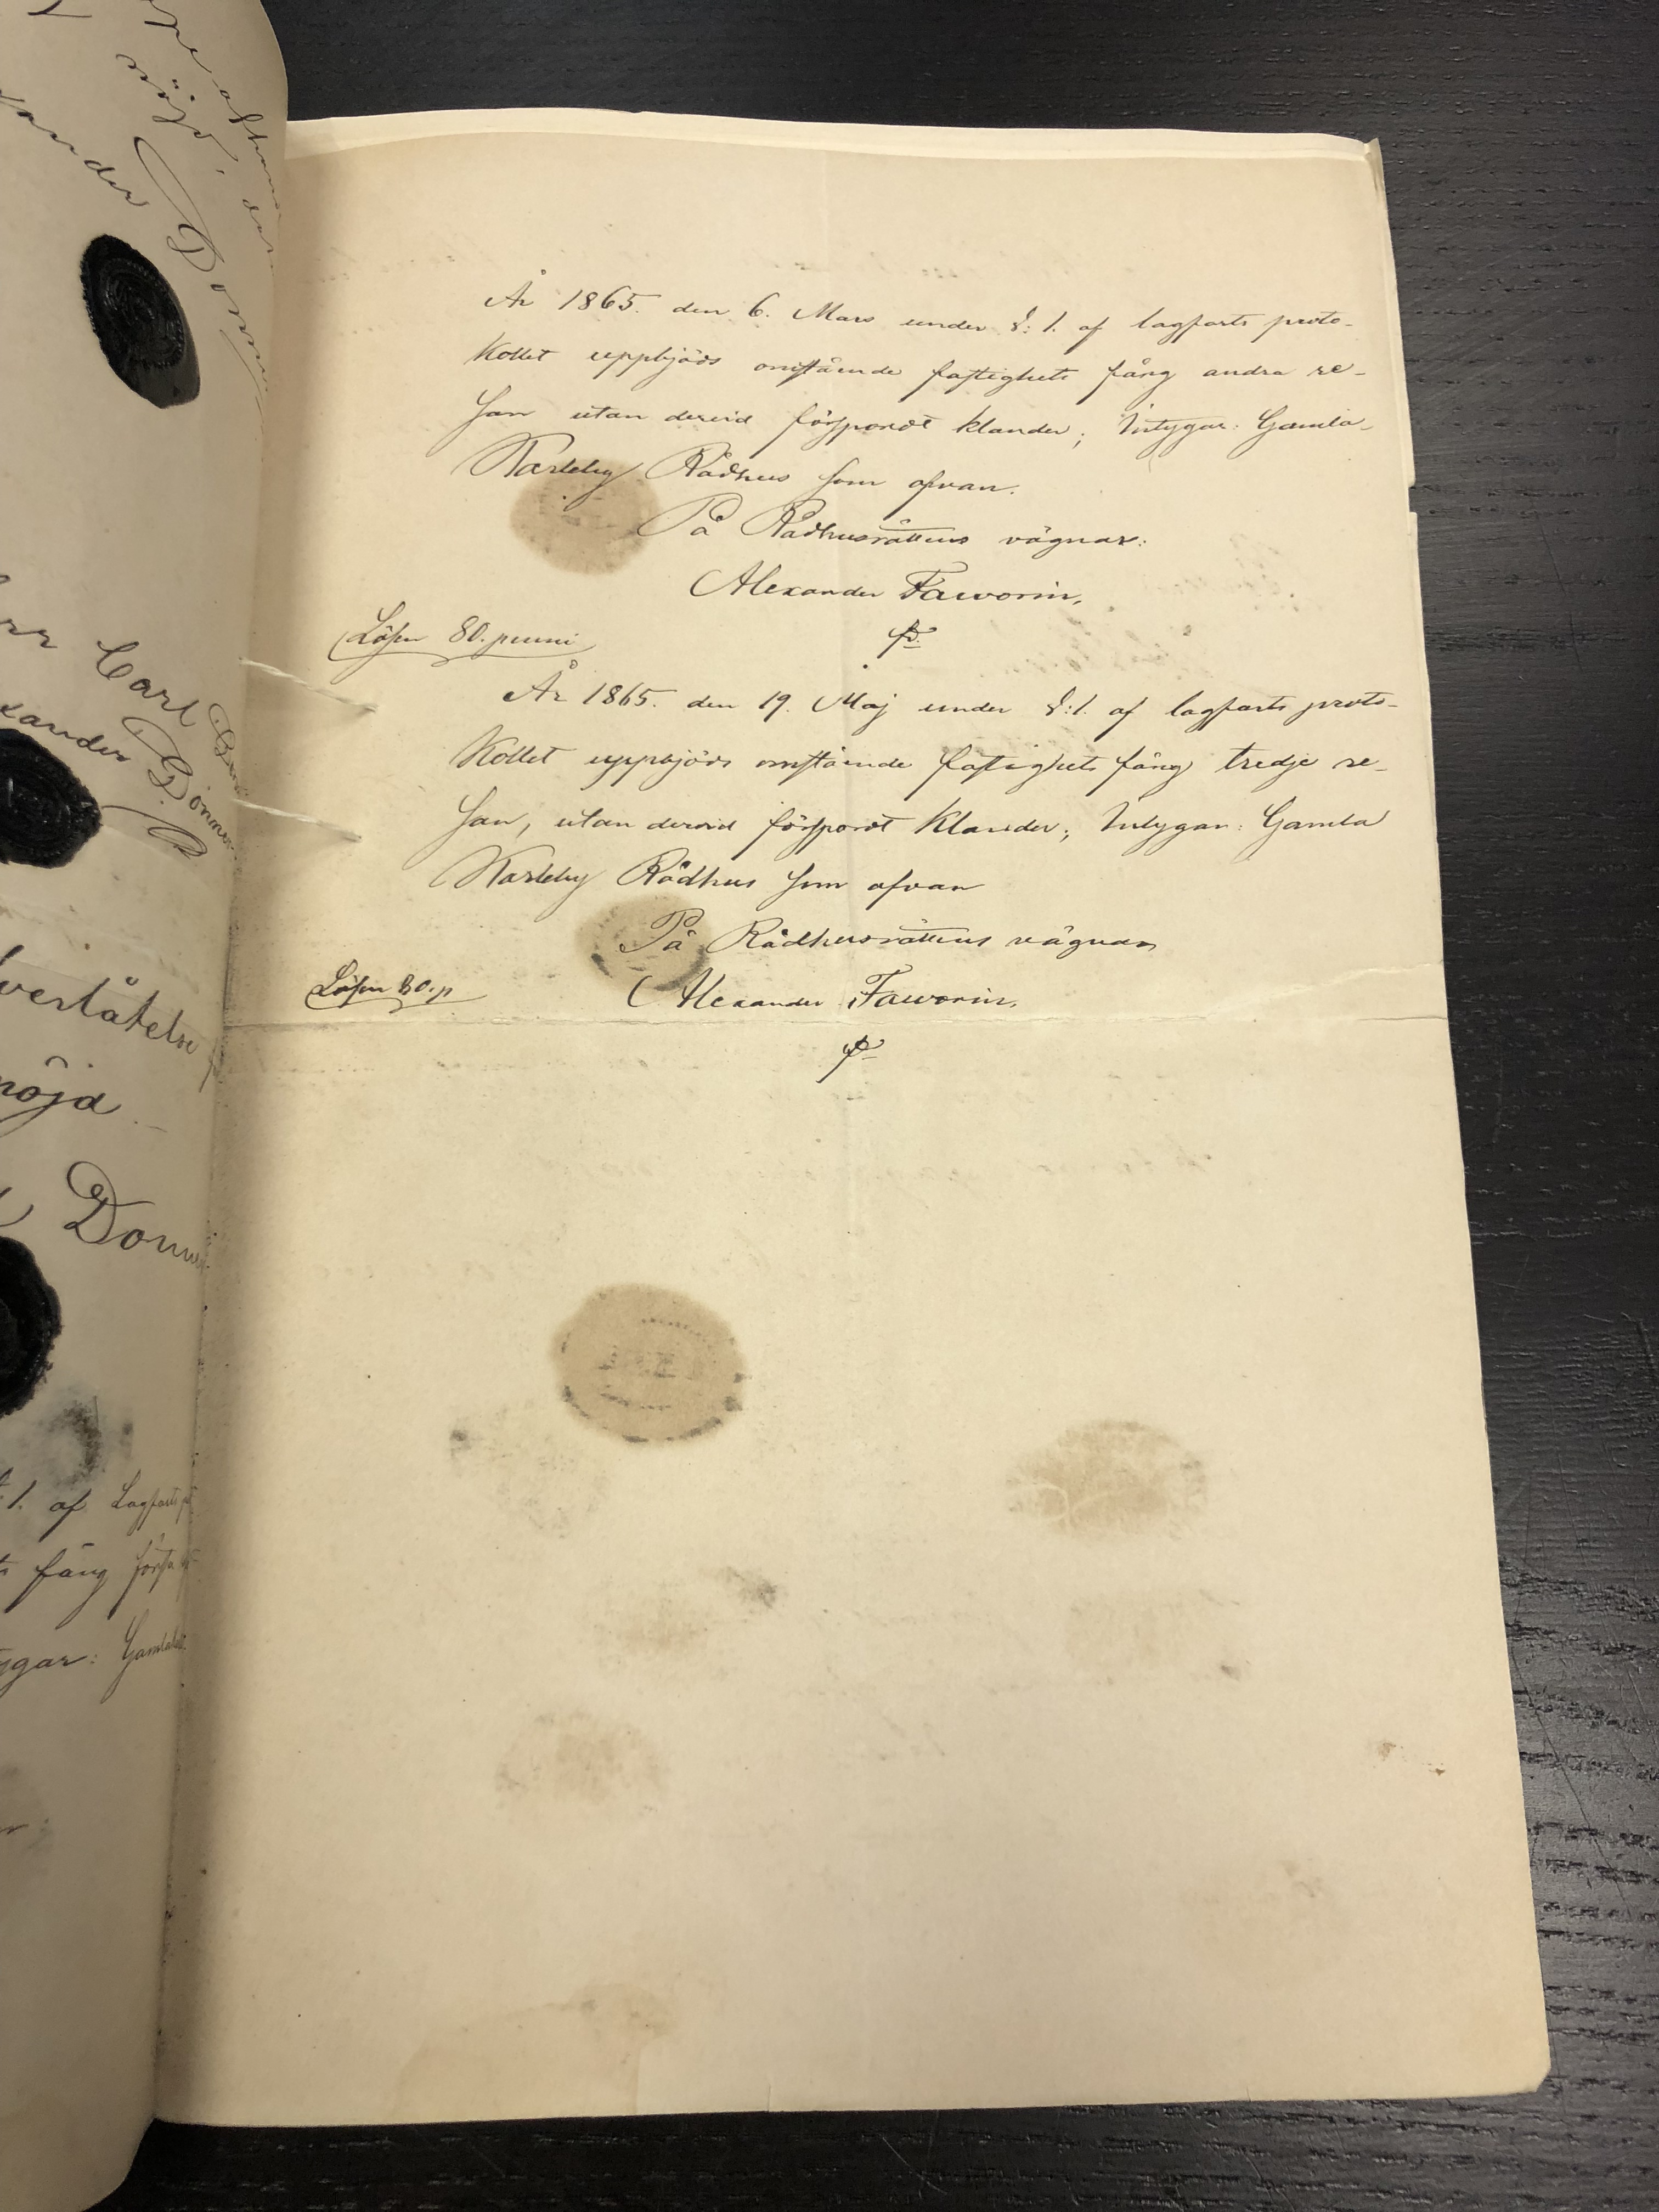 År 1865. den 6. Mars under §: 1. af lagfarts proto-
kollet uppbjöds omstående fastighets fång andra re-
san utan dervid försporдt klander; Intygar: Gamla-
Karleby Rådhus som ofvan.
På Rådhusrättens vägnar:
Alexander Faworin,
Lösen 80. penni
År 1865. den 19. Maj under §:1. af lagfarts proto-
kollet uppbjöds omstående fastighets fång tredje re-
san, utan dervid förspordt klander; Intygar: Gamla
Karleby Rådhus som ofvan
På Rådhusrättens vägnar
Lösen 80. p
Alexander Faworin,
Carl
verlåtelse
nöja
1. af Lagfarts
fång första
gar: Gamla